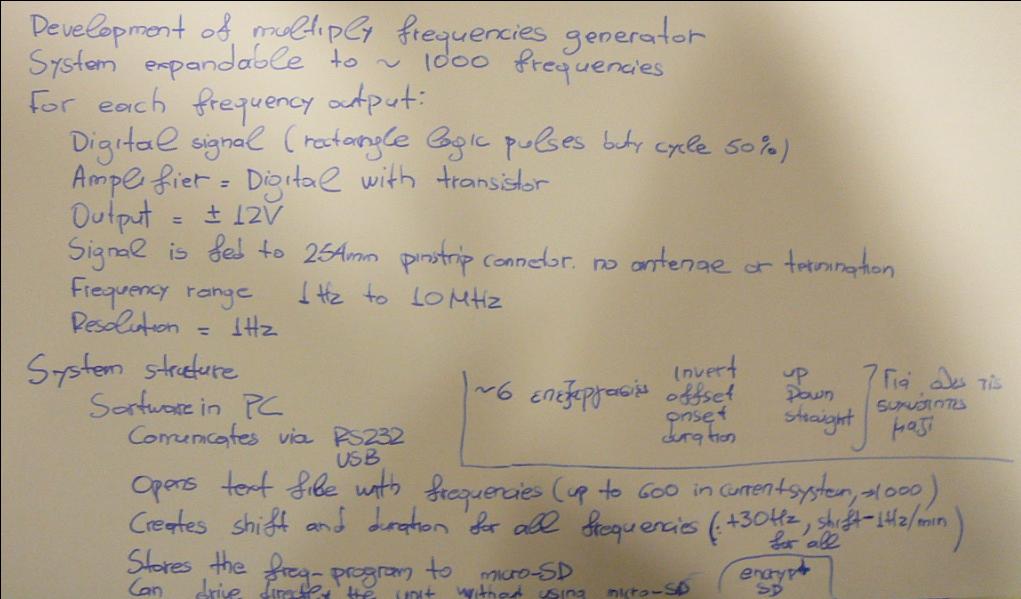 Development of multiply frequencies generator
System expandable to ~ 1000 frequencies
For each frequency output:
Digital signal (rectangle logic pulses duty cycle 50%)
Amplifier = Digital with transistor
Output = ± 12V
Signal is fed to 254mm pinstrip connetor. no antenae or termination
Frequency range 1Hz to 10MHz
Resolution = 1Hz
System struture
Sortware in PC
Comunicates via RS232
USB
~6 επεξεργασίες
invert
offset
onset
duration
up
Down
straight
Για όλες τις
συχνότητες
μαζί
Opens text file with frequencies (up to 600 in current system, →1000)
Creates shift and duration for all frequencies (: +30Hz, shift-1Hz/min)
for all
Stores the freq-program to micro-SD
encrypt
SD
Can drive directly the unit without using micro-SD